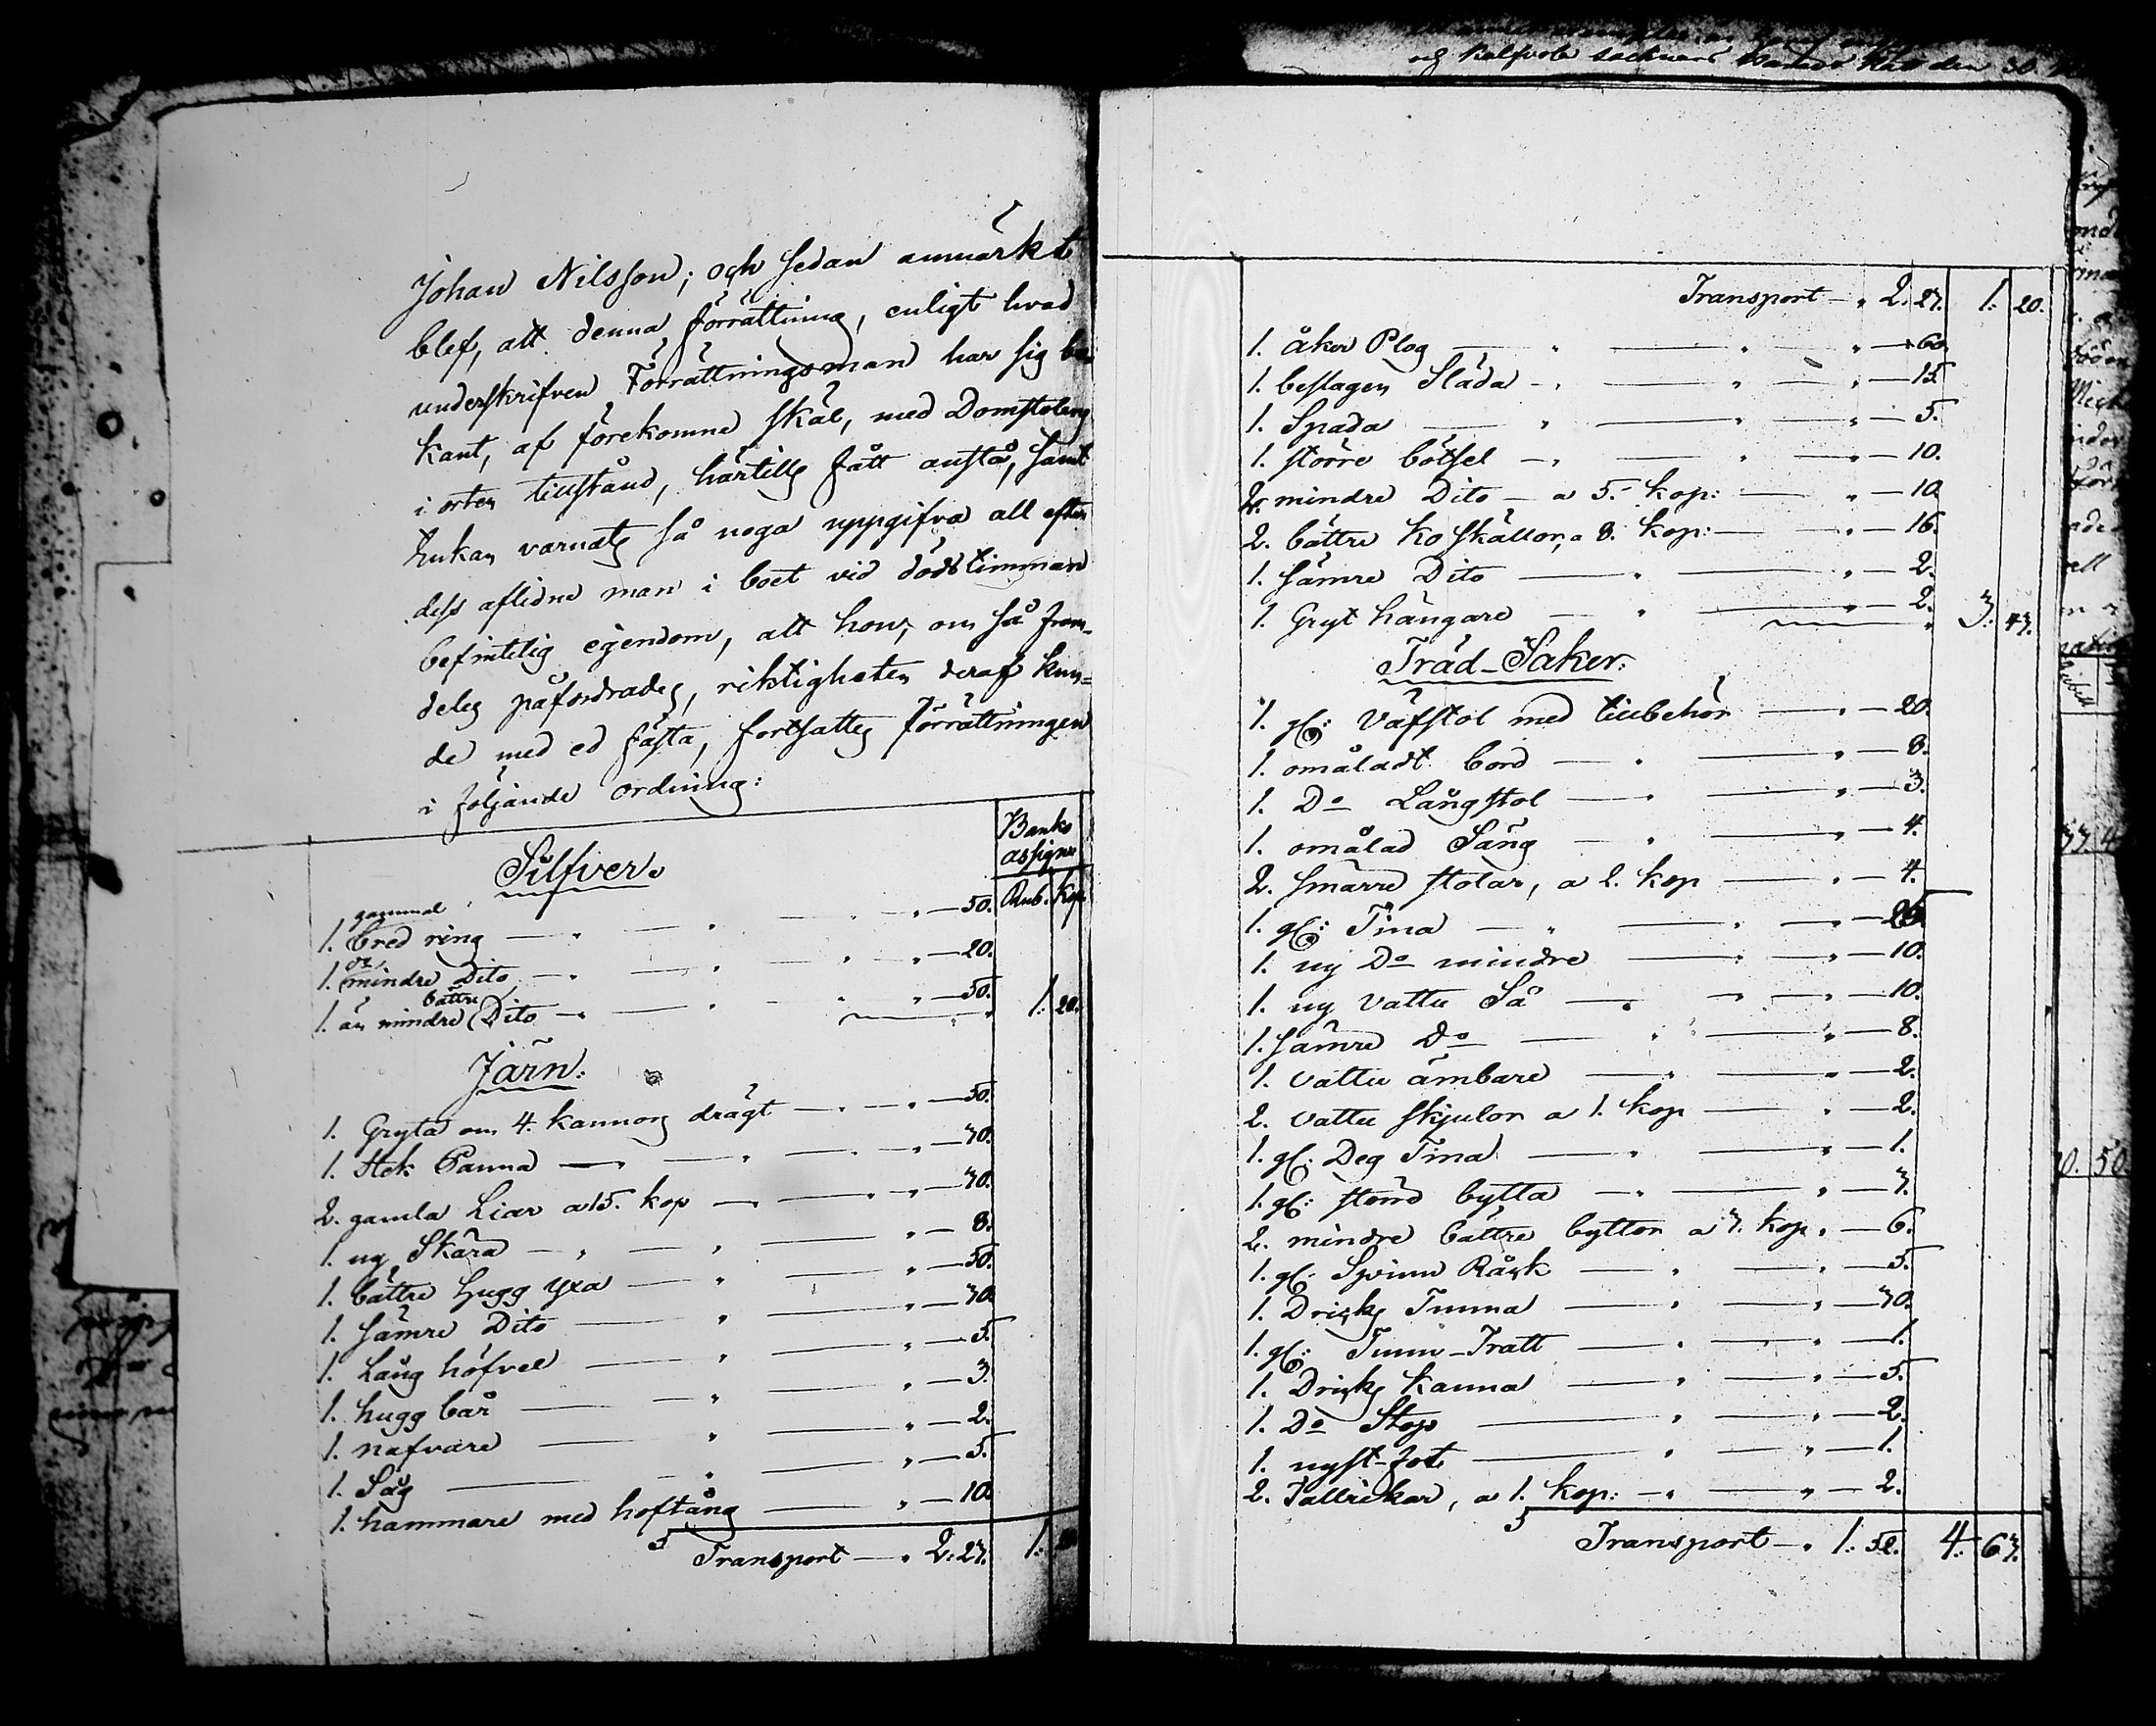 Johan Nilsson; och sedan anmärkt
blef, att denna förrättning, enligt hvad
underskrifven Förrättningsman har sig be-
kant, af förekomne skäl, med Domstolens
i orten tillstånd, härtills fått anstå, samt
Enkan varnats så noga uppgifva all efter
dess aflidne man i boet vid dödstimman
befintelig egendom, att hon, om så fram-
deles påfordrades, riktigheten deraf kun-
de med ed fästa, fortsattes förrättningen
i följande ordning:
Banko
assign:
Silfver.
Rub. Kop.
1. gammal bred ring — 50.
1. mindre Dito — 20.
1. än mindre bättre Dito — 50. 1. 20.
Järn:
1. Gryta om 4. kannors drägt — 50.
1. Stek Panna — 30.
2. gamla Liar a 15. kop — 30.
1. ny Skära — 8.
1. bättre hugg yxa — 50.
1. sämre Dito — 30.
1. Lång höfvel — 5.
1. hugg bår — 3.
1. nafvare — 2.
1. Såg — 5.
1. hammare med hoftång — 10.
Transport — 2. 23. 1. 20.
och socknars den 30.
Transport — 2. 23. 1. 20.
1. åker Plog — 60.
1. beslagen Släda — 15.
1. Spada — 5.
1. större bötsel — 10.
2. mindre Dito — a 5. kop: — 10.
2. bättre ko skällor, a 8. kop: — 16.
1. sämre Dito — 2.
1. Gryt hängare — 2. 3. 43.
Träd-Saker:
1. gl: Väfstol med tillbehör — 20.
1. omåladt bord — 8.
1. Do Långstol — 3.
1. omålad Säng — 4.
2. smärre stolar, a 2. kop — 4.
1. gl: Tina — 25.
1. ny Do mindre — 10.
1. ny vattu Så — 10.
1. sämre Do — 8.
1. vattu ämbare — 2.
2. vattu skjulor a 1. kop — 2.
1. gl: Deg Tina — 1.
1. gl: stönd bytta — 3.
2. mindre bättre byttor a 3. kop. — 6.
1. gl: Spinn Råck — 5.
1. Dricks Tunna — 30.
1. gl: Tunn-Tratt — 1.
1. Dricks kanna — 5.
1. Do Stop — 2.
1. nyst-fot — 1.
2. Tallrikar, a 1. kop: — 2.
Transport — 1. 52. 4. 63.